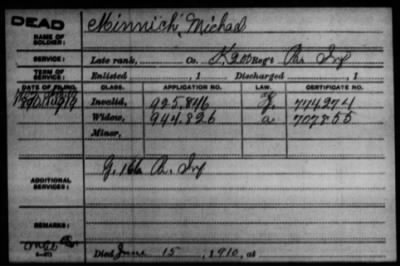 DEAD
NAME OF SOLDIER:
Minnich, Michael
SERVICE:
Late rank, Co. K 200 Reg't Pa. Inf
TERM OF SERVICE:
Enlisted , 1 Discharged , 1
DATE OF FILING. CLASS. APPLICATION NO. LAW. CERTIFICATE NO.
Invalid, 925.846 774274
Widow, 944.826 a 707855
Minor,
ADDITIONAL SERVICES:
G. 166 Pa. Inf
REMARKS:
Died June 15, 1910, at